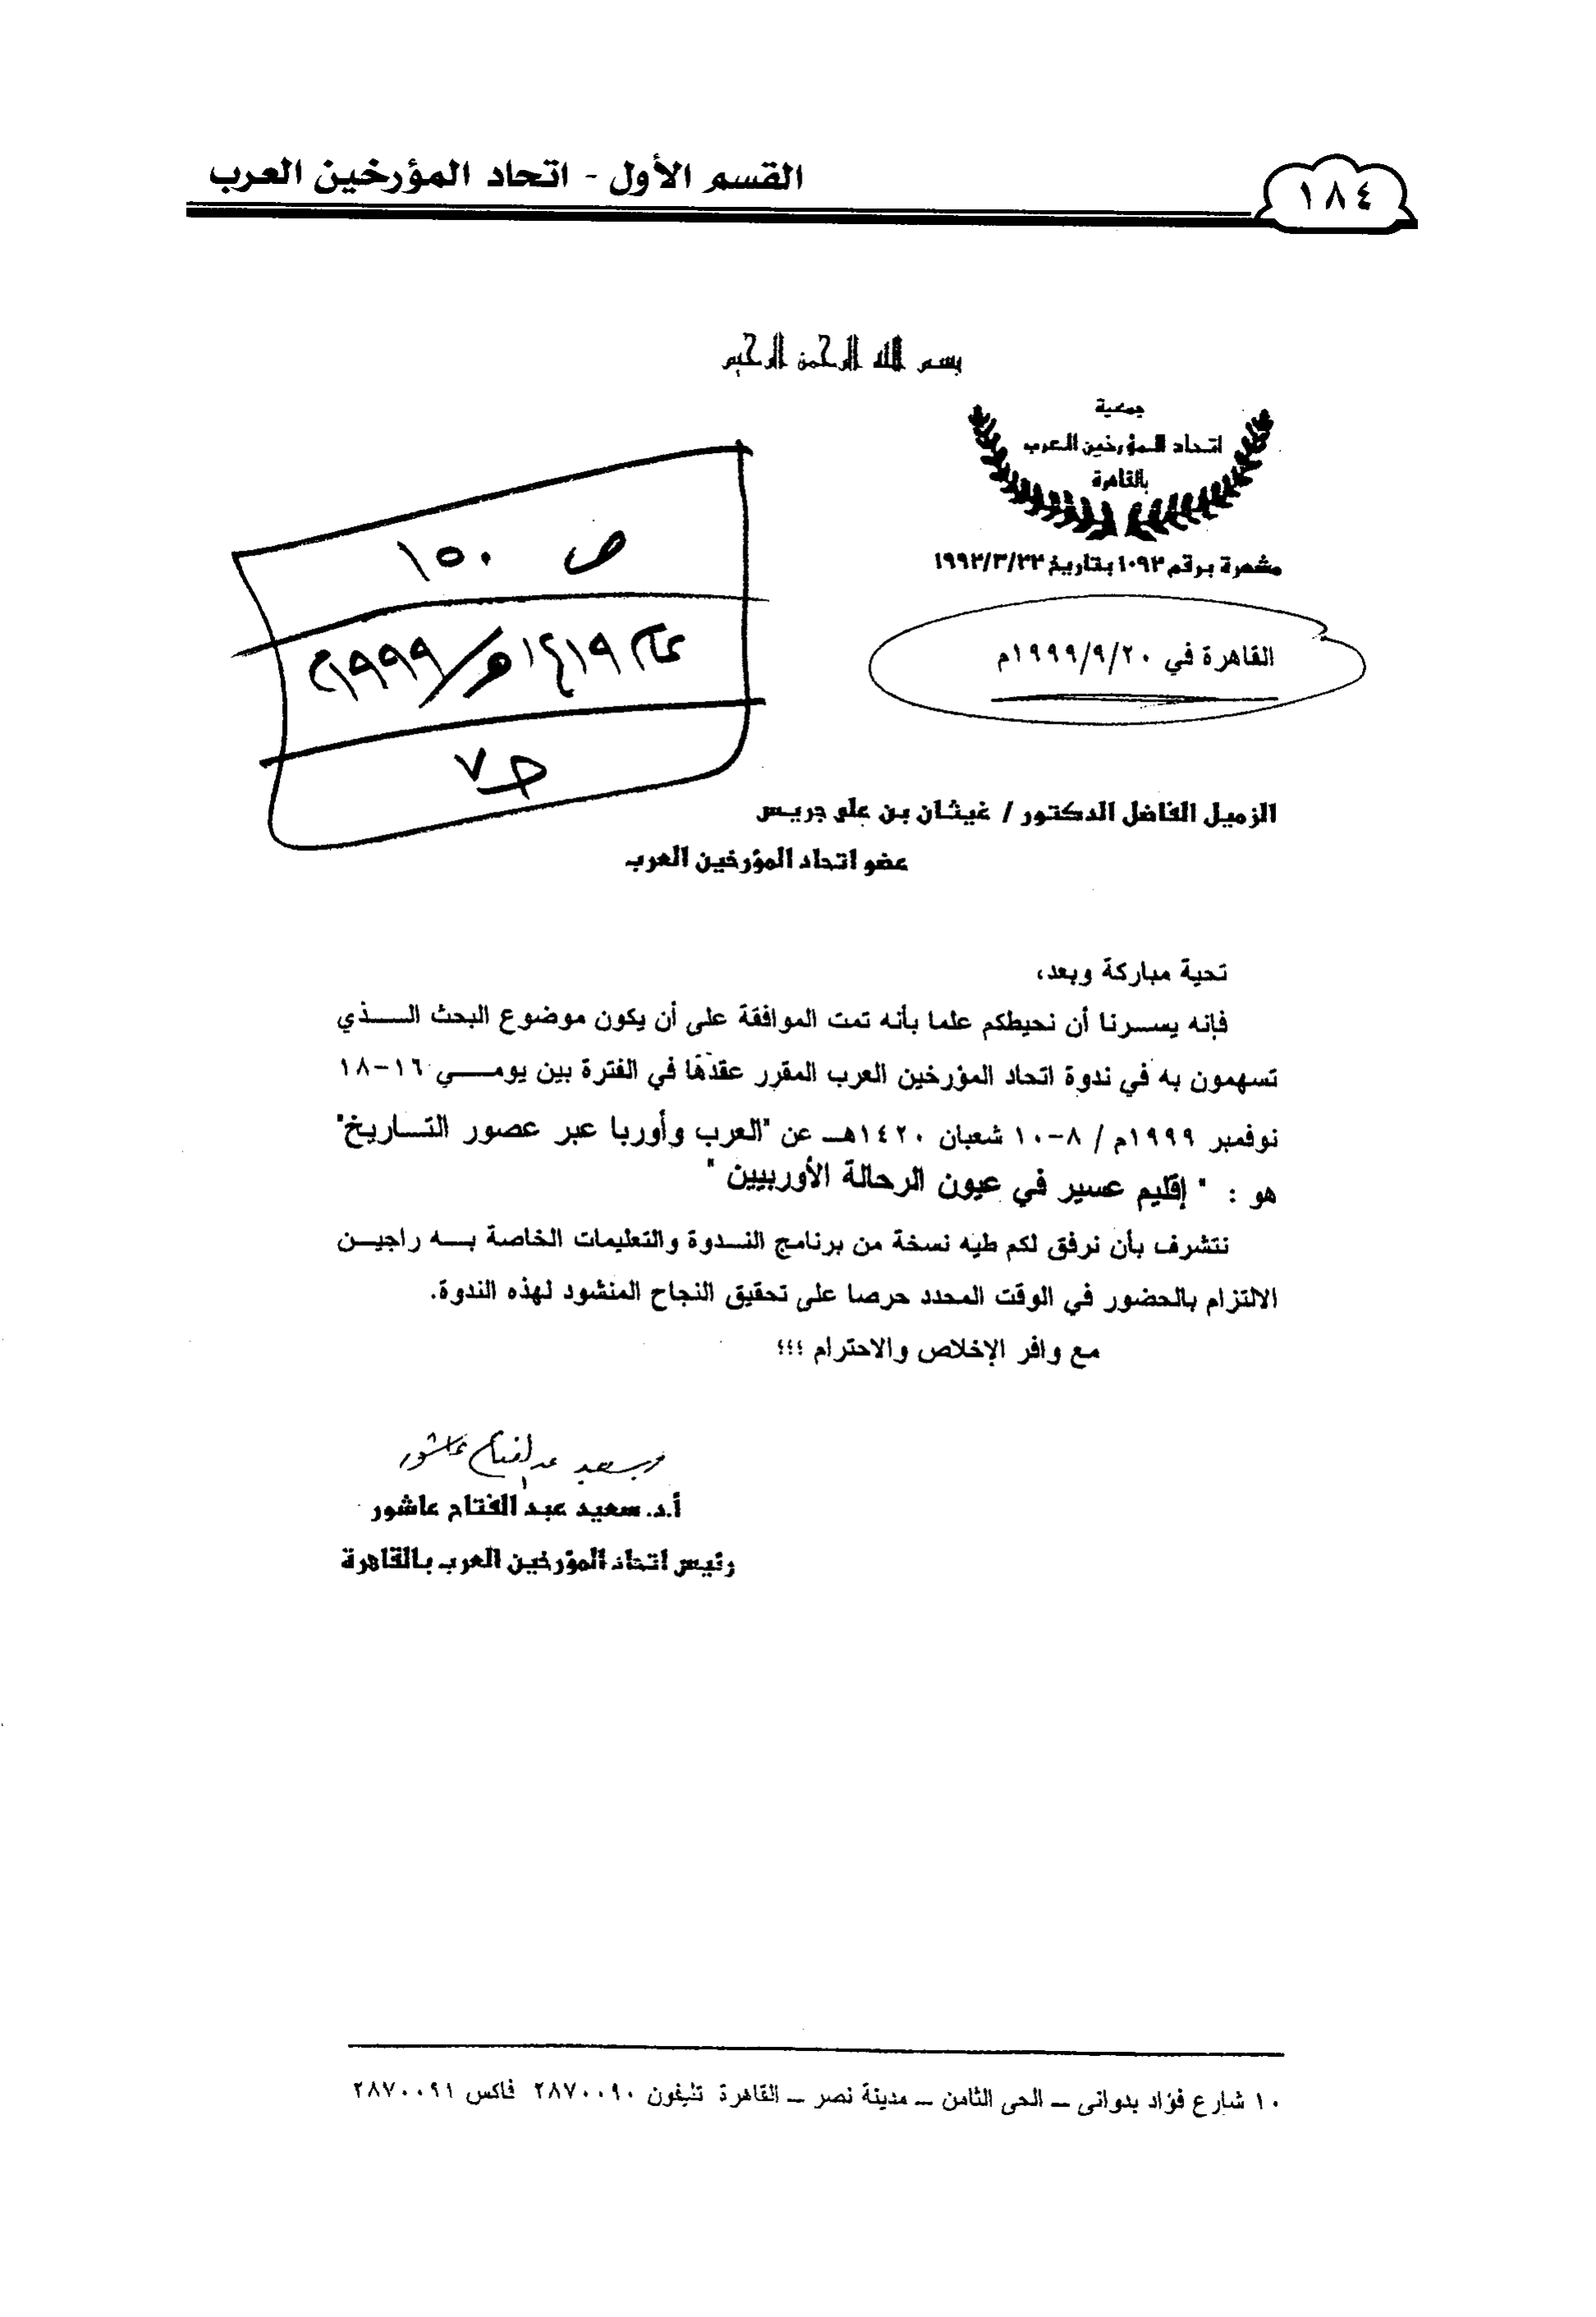 ١٨٤
القسم الأول - اتحاد المؤرخين العرب
بسم الله الرحمن الرحيم
جمعية
اتحاد المؤرخين العرب
بالقاهرة
مشهرة برقم ١٠٩٢ بتاريخ ١٩٩٢/٣/٢٢
القاهرة في ١٩٩٩/٩/٢٠م
ص ١٥٠
عام ١٤١٩هـ/١٩٩٩م
حـ٧
الزميل الفاضل الدكتور / غيثان بن على جريس
عضو اتحاد المؤرخين العرب
تحية مباركة وبعد،
فإنه يســرنا أن نحيطكم علما بأنه تمت الموافقة على أن يكون موضوع البحث الـــذي
تسهمون به في ندوة اتحاد المؤرخين العرب المقرر عقدها في الفترة بين يومـــي ١٦-١٨
نوفمبر ١٩٩٩م / ٨-١٠ شعبان ١٤٢٠هـ عن "العرب وأوربا عبر عصور التــاريخ"
هو : " إقليم عسير في عيون الرحالة الأوربيين "
نتشرف بأن نرفق لكم طيه نسخة من برنامج الندوة والتعليمات الخاصة بــه راجيــن
الالتزام بالحضور في الوقت المحدد حرصا على تحقيق النجاح المنشود لهذه الندوة.
مع وافر الإخلاص والاحترام ؛؛؛
سعيد عبد الفتاح عاشور
أ.د. سعيد عبد الفتاح عاشور
رئيس اتحاد المؤرخين العرب بالقاهرة
١٠ شارع فؤاد بدوانى – الحى الثامن – مدينة نصر – القاهرة تليفون ٢٨٧٠٠٩٠ فاكس ٢٨٧٠٠٩١